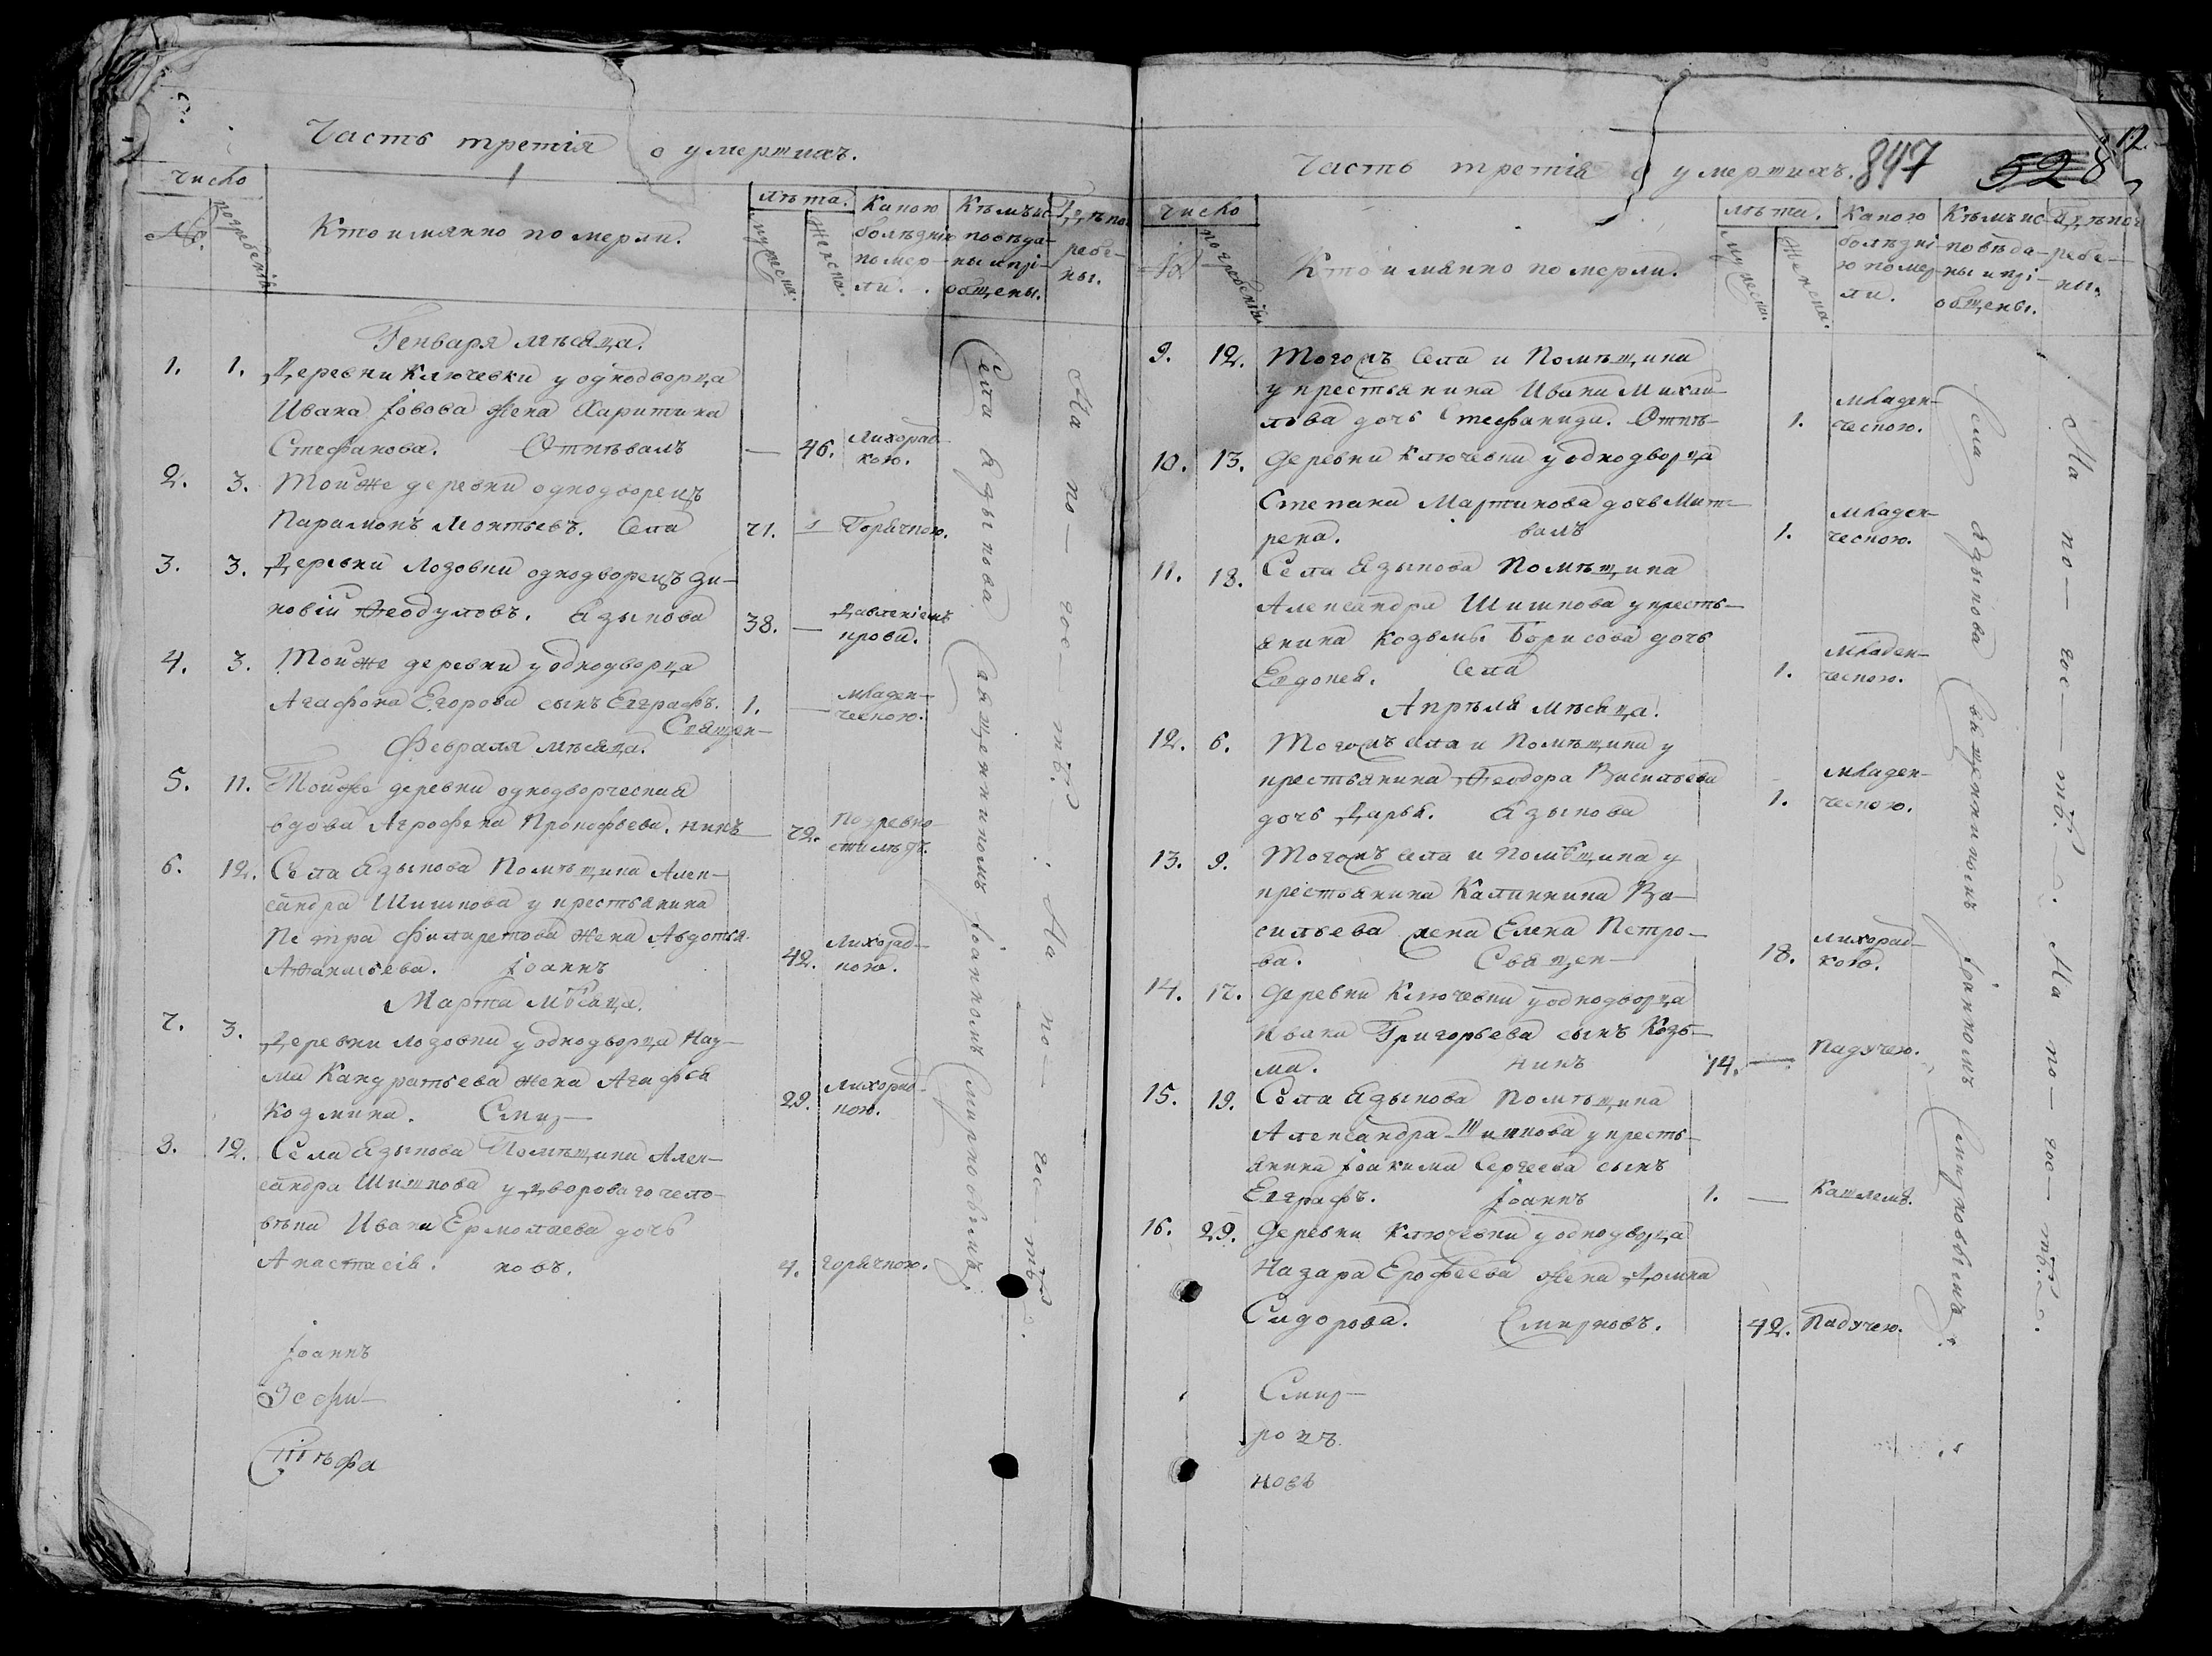 Часть третія о умершихъ.
число
№.
погребенія
Кто имянно померли.
лѣта.
мужеска.
женска.
Какою
болѣзнію
помер-
ли.
Кѣмъ ис-
повѣда-
ны и прі-
общены.
Гдѣ пог-
ребе-
ны.
Генваря мѣсяца.
1. 1. Деревни Ключевки у однодворца
Ивана Іовова жена Харитина
Стефанова. Отпѣвалъ — 46. Лихорад-
кою.
2. 3. Тойже деревни однодворецъ
Парамонъ Леонтьевъ. Села 71. — Горячкою.
3. 3. Деревни Лозовки однодворецъ Зи-
новій Ѳеодуловъ. Языкова 38. — Давленіемъ
крови.
4. 3. Тойже деревни у однодворца
Агафона Егорова сынъ Евграфъ. 1. — младен-
ческою.
Священ-
Февраля мѣсяца.
5. 11. Тойже деревни однодворческая
вдова Агрофена Прокофьева. никъ 72. По древно-
сти лѣтъ.
6. 12. Села Языкова Помѣщика Алек-
сандра Шишкова у крестьянина
Петра Филаретова жена Авдотья
Аѳанасьева. Іоаннъ 42. Лихорад-
кою.
Марта мѣсяца.
7. 3. Деревни Лозовки у однодворца Нау-
ма Кандратьева жена Агафья
Козмина. Смир- 29. Лихорад-
кою.
8. 12. Села Языкова Помѣщика Алек-
сандра Шишкова у двороваго чело-
вѣка Ивана Ермолаева дочь
Анастасія. новъ. 4. горячкою.
Села Языкова Священникомъ Іоанномъ Смирновымъ.
На по- гос- тѣ. На по- гос- тѣ.
Іоаннъ
Часть третія о умершихъ. 847 528 12.
число
№
погребенія
Кто имянно померли.
лѣта.
мужеска.
женска.
Какою
болѣзні-
ю помер-
ли.
Кѣмъ ис-
повѣда-
ны и прі-
общены.
Гдѣ пог-
ребе-
ны.
9. 12. Тогожъ Села и Помѣщика
у крестьянина Ивана Михай-
лова дочь Стефанида. Отпѣ- 1. младен-
ческою.
10. 13. Деревни Ключевки у однодворца
Степана Мартинова дочь Мат-
рена. валъ 1. младен-
ческою.
11. 18. Села Языкова Помѣщика
Александра Шишкова у кресть-
янина Козьмы Борисова дочь
Евдокея. Села 1. младен-
ческою.
Апрѣля мѣсяца.
12. 6. Тогожъ села и Помѣщика у
крестьянина Ѳеодора Васильева
дочь Дарья. Языкова 1. младен-
ческою.
13. 9. Тогожъ села и помѣщика у
крестьянина Калинника Ва-
сильева жена Елена Петро-
ва. Священ- 18. лихорад-
кою.
14. 17. Деревни Ключевки у однодворца
Ивана Григорьева сынъ Козь-
ма. никъ 14. — Падучею.
15. 19. Села Языкова Помѣщика
Александра Шишкова у кресть-
янина Іоакима Сергеева сынъ
Евграфъ. Іоаннъ 1. — Кашлемъ.
16. 29. Деревни Ключевки у однодворца
Назара Ерофеева жена Домна
Сидорова. Смирновъ. 42. Падучею.
Села Языкова Священникомъ Іоанномъ Смирновымъ.
На по- гос- тѣ. На по- гос- тѣ.
Смир-
новъ